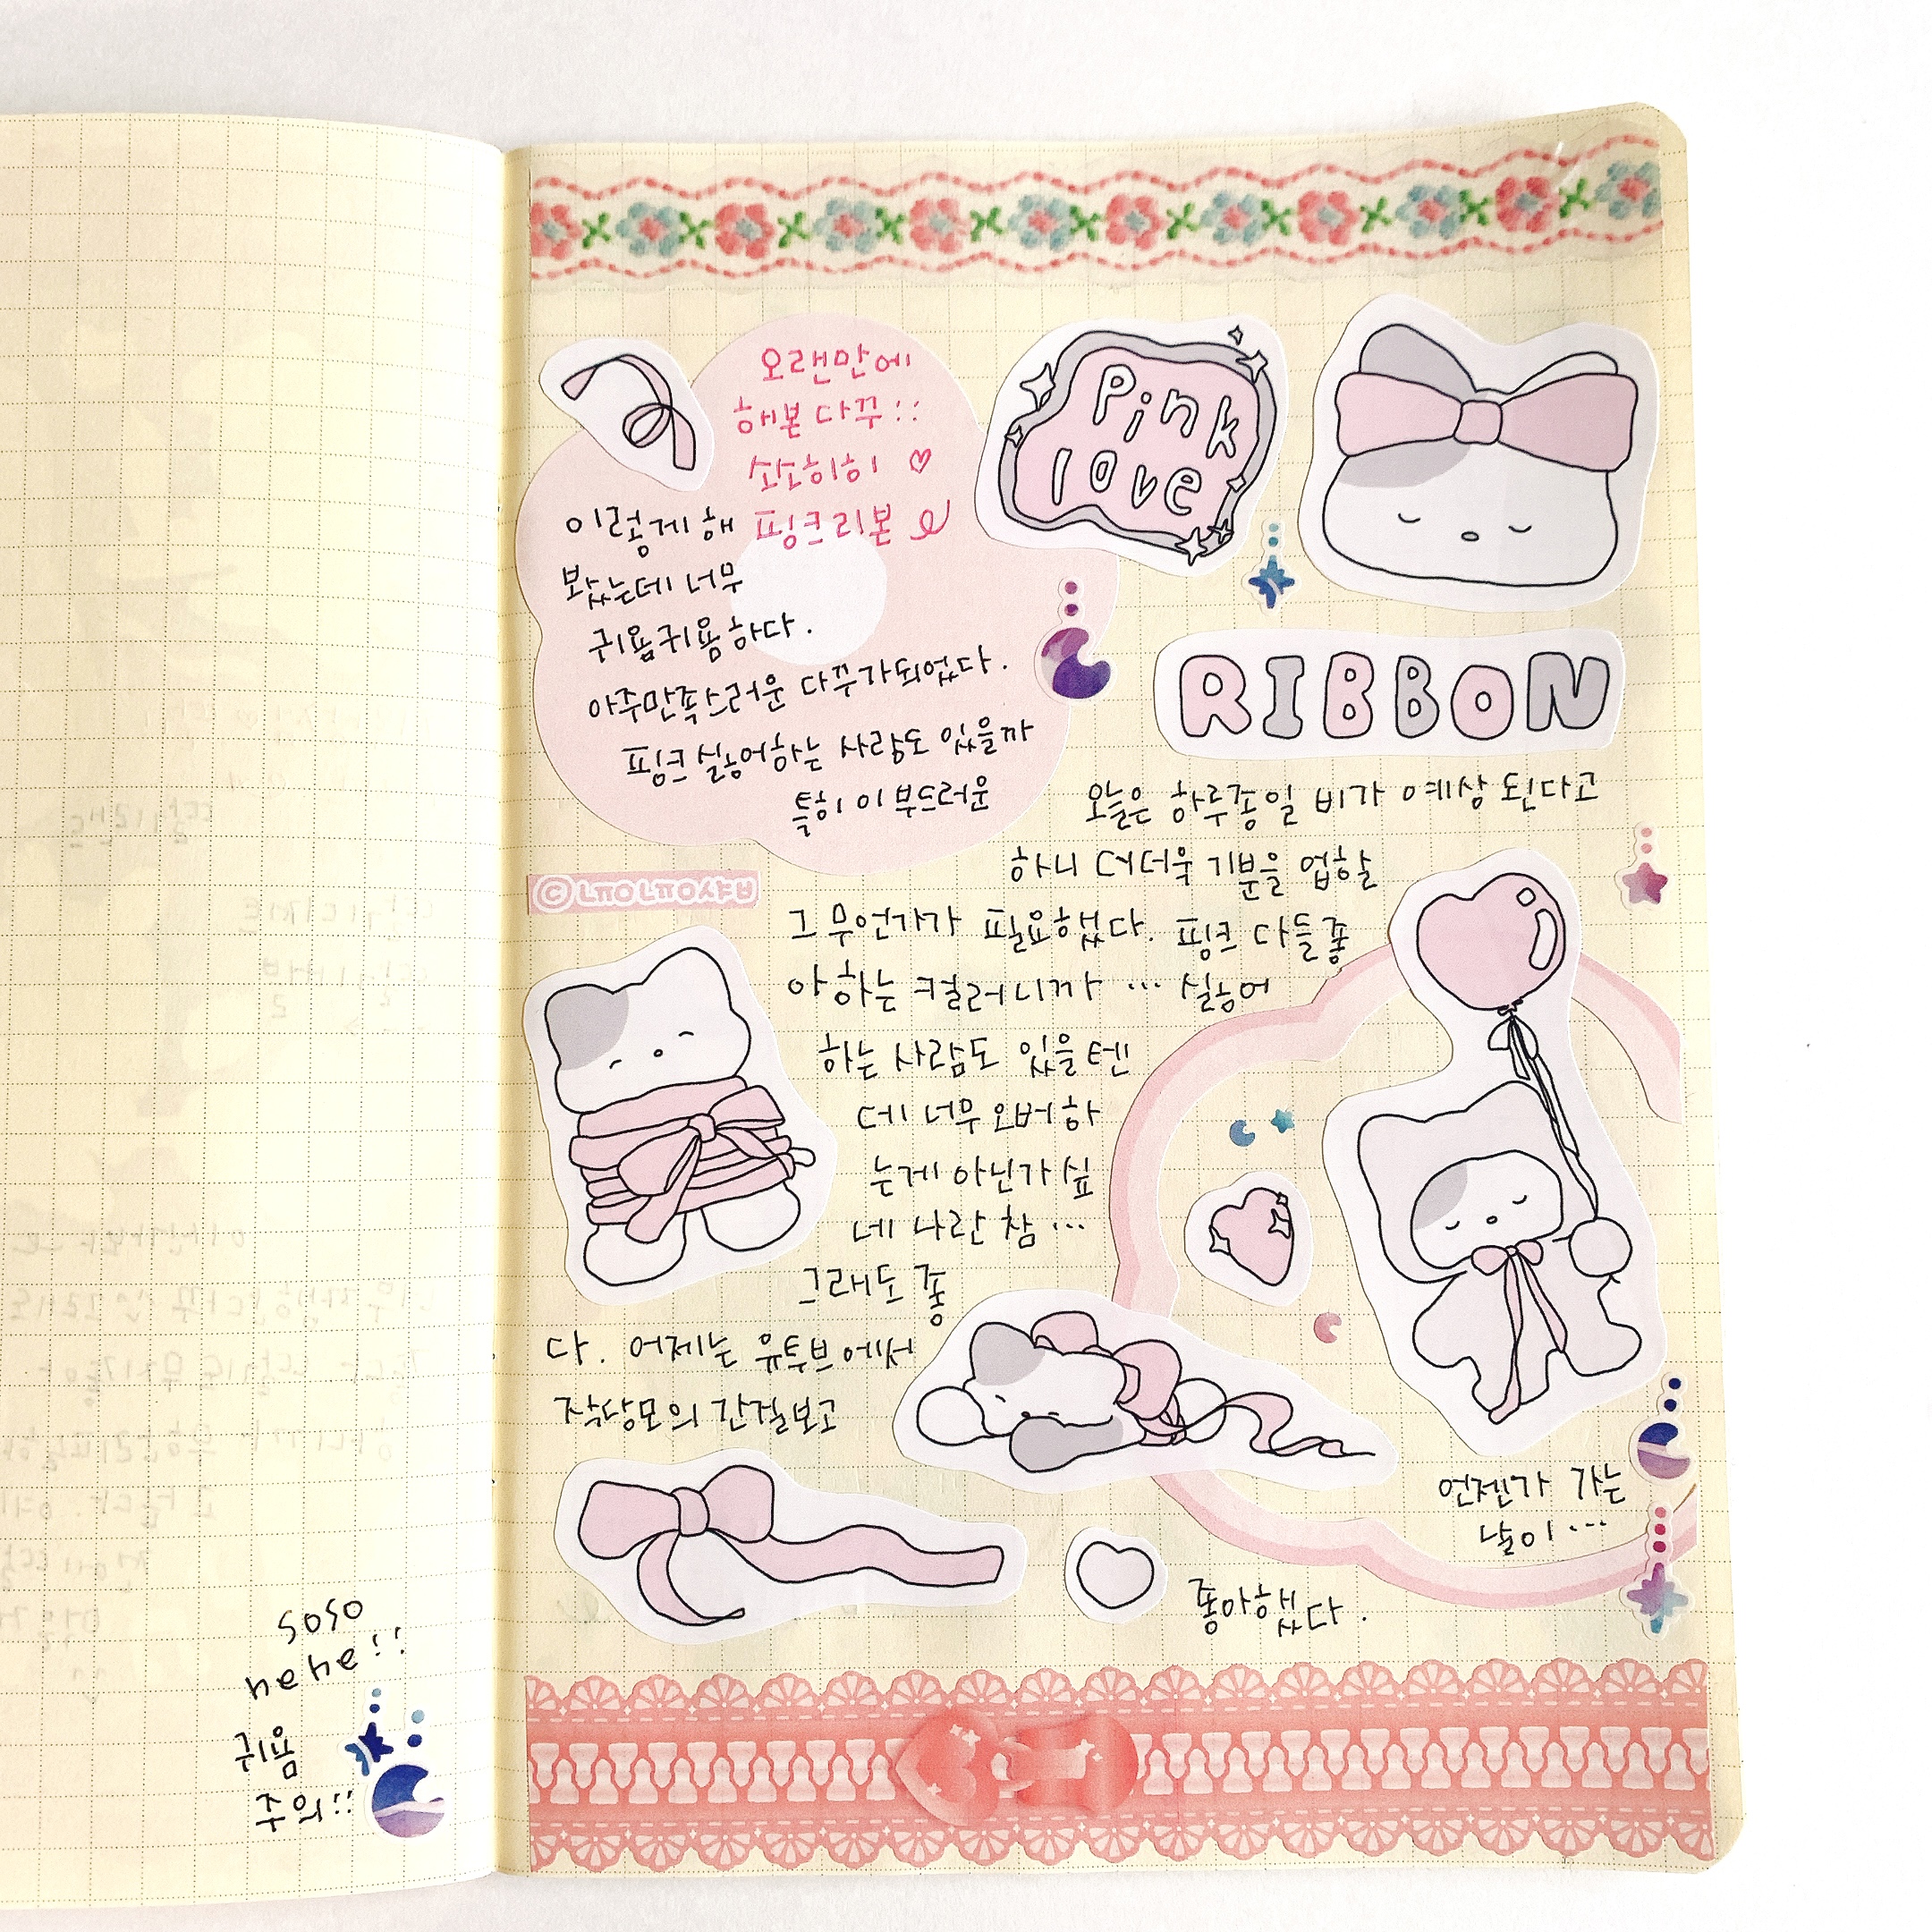 오랜만에
해본 다꾸::
소소히히 ♡
핑크리본
이렇게 해
봤는데 너무
귀욤귀욤하다.
아주만족스러운 다꾸가되었다.
핑크싫어하는 사람도 있을까
특히 이 부드러운
Pink
love
RIBBON
오늘은 하루종일 비가 예상 된다고
하니 더더욱 기분을 업할
그 무언가가 필요했다. 핑크 다들좋
아하는 컬러니까 … 싫어
하는 사람도 있을텐
데 너무오버하
는게 아닌가싶
네 나란 참 …
그래도 좋
다. 어제는 유투브에서
작당모의 간걸보고
언젠가 가는
날이 …
좋아했다.
soso
heyay::
귀욤
주의::